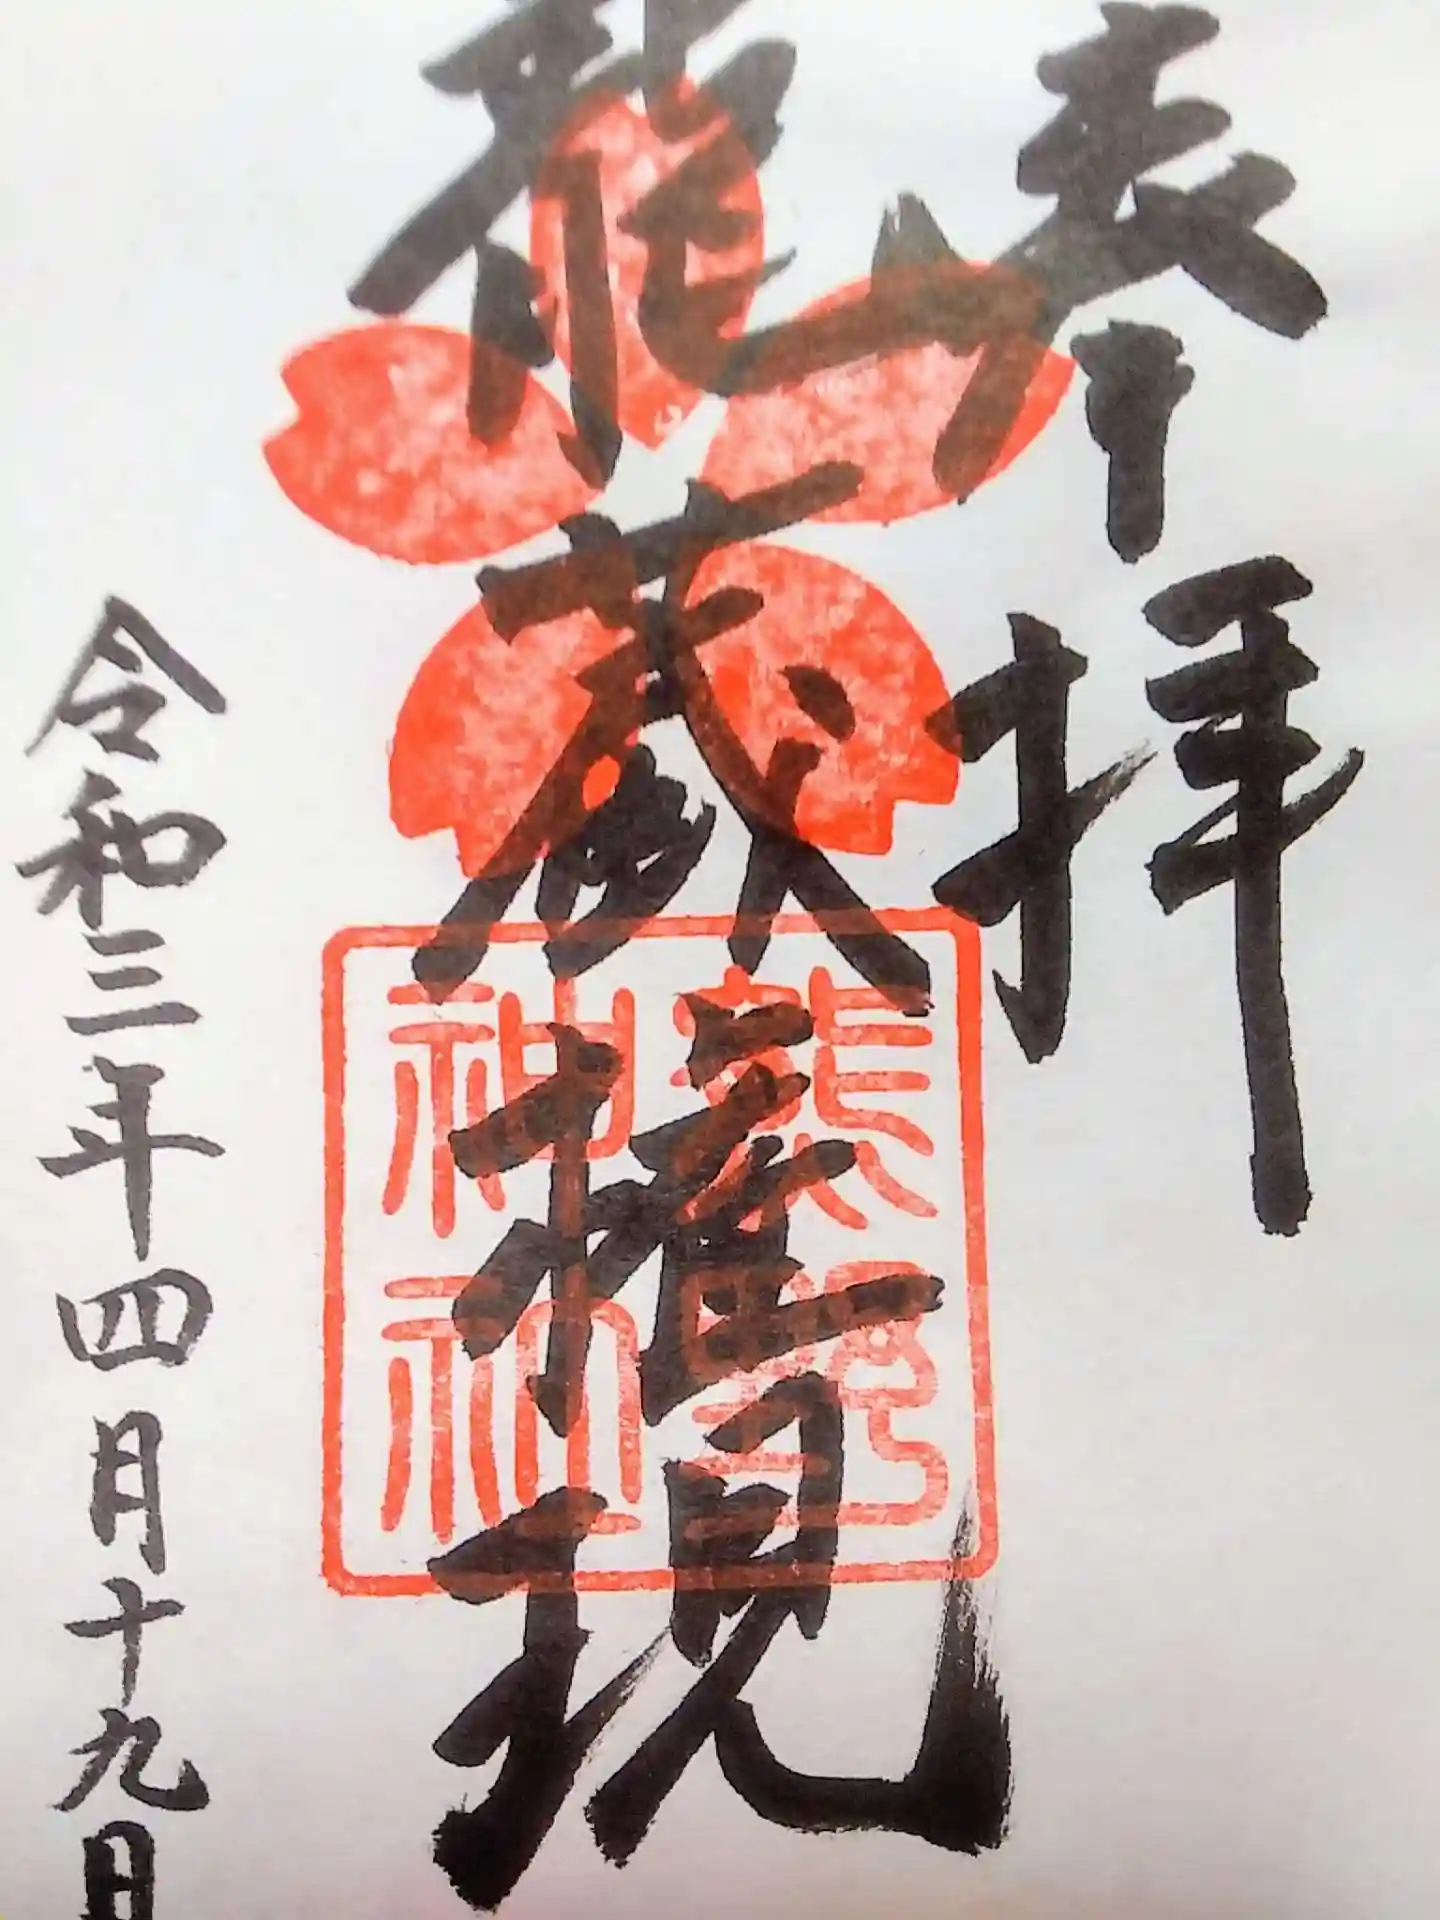 奉拝
龍蔵権現
熊野
神社
令和三年四月十九日